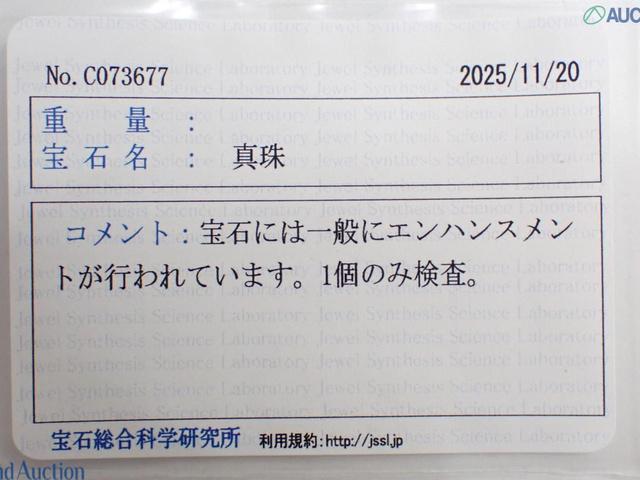 AUC
No.C073677 2025/11/20
重量：
宝石名： 真珠
コメント：宝石には一般にエンハンスメン
トが行われています。1個のみ検査。
宝石総合科学研究所 利用規約：http://jssl.jp
nd Auction
Jewel Synthesis Science Laboratory